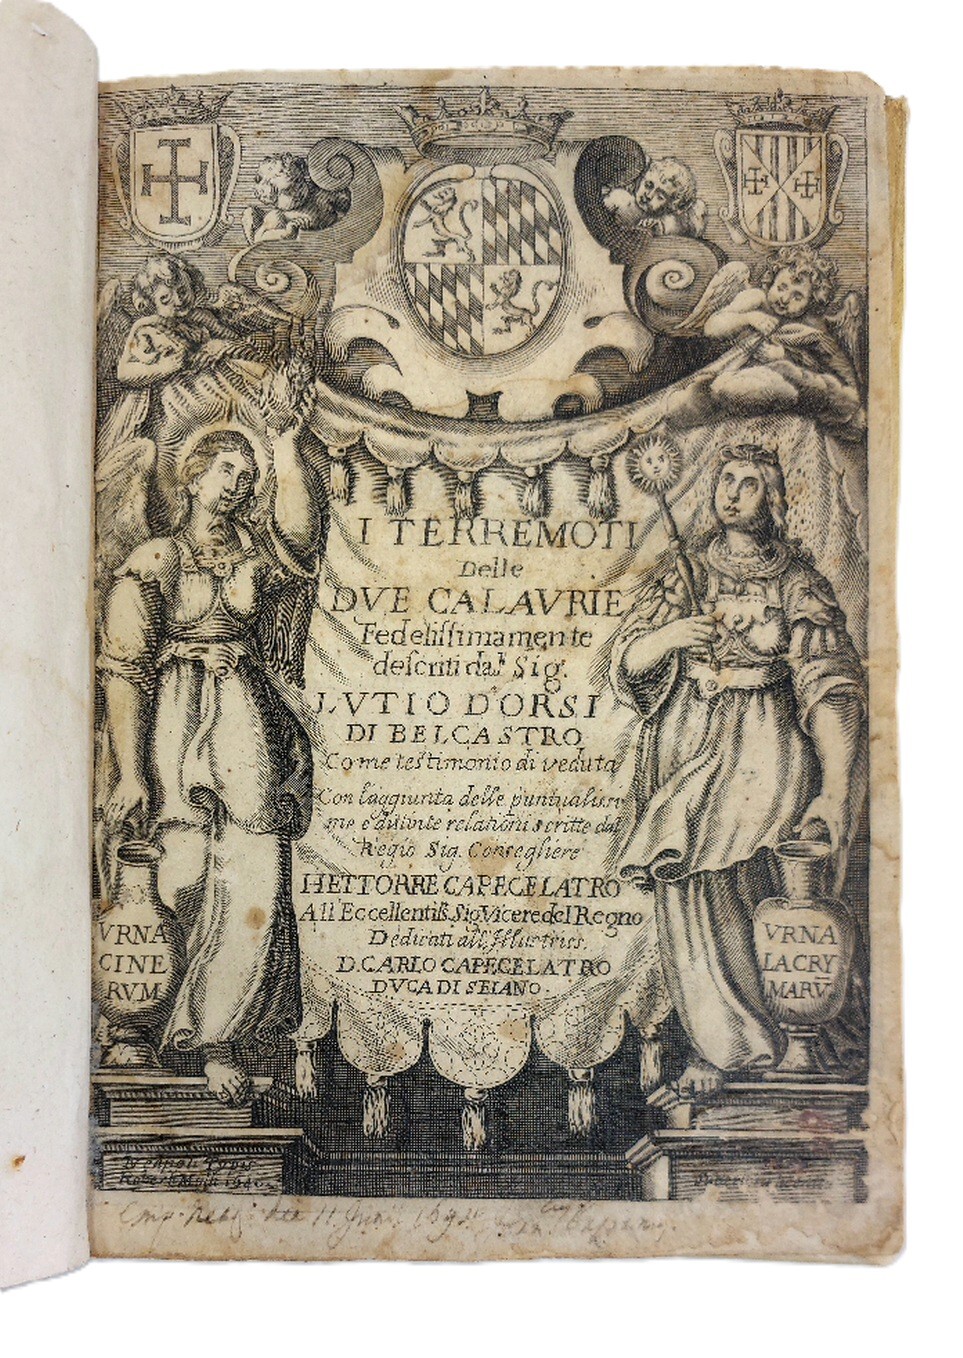 I TERREMOTI
Delle
DVE CALAVRIE
Fedelissimamente
descriti dal Sig.
LVTIO D'ORSI
DI BELCASTRO
Come testimonio di veduta
Con l'aggiunta delle puntualissi
me e distinte relationi scritte dal
Regio Sig. Consegliere
HETTORRE CAPECELATRO
All Eccellentiss. Sig Vicere del Regno
Dedicati all'Illustriss.
D. CARLO CAPECELATRO
DVCA DI SEIANO.
VRNA
CINE
RVM
VRNA
LACRY
MARV̄
Neapoli Typis